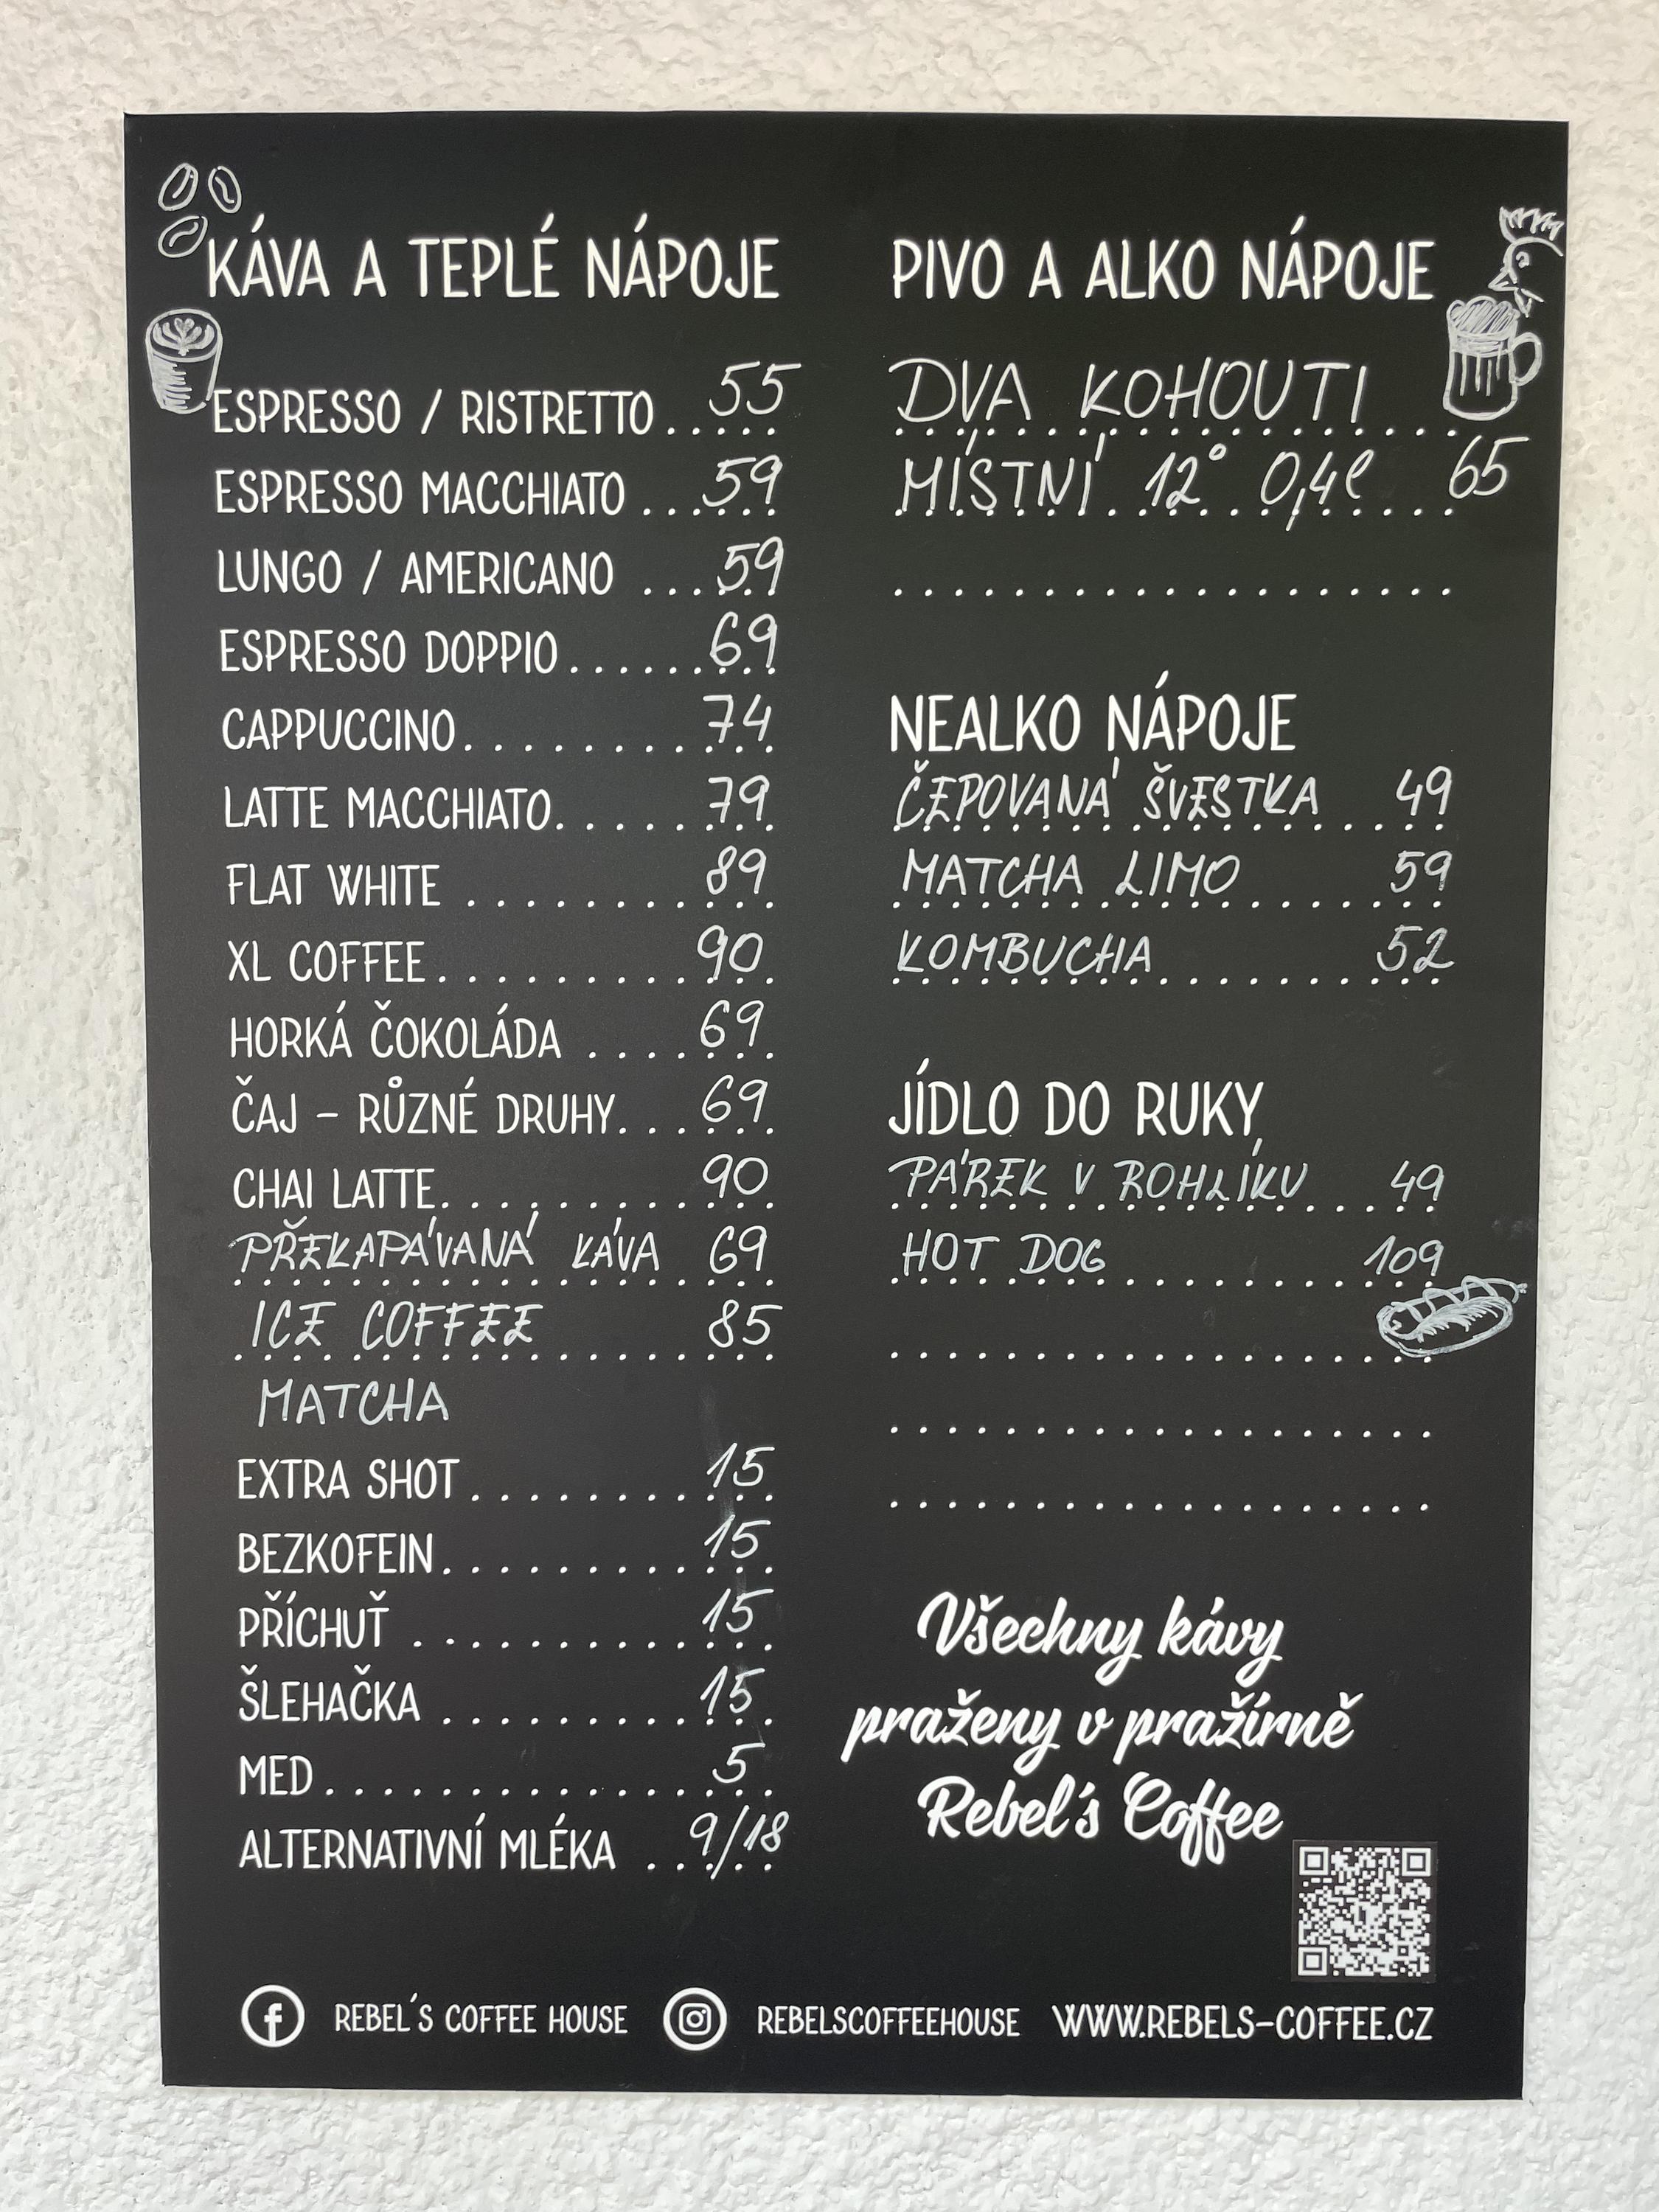 KÁVA A TEPLÉ NÁPOJE
ESPRESSO / RISTRETTO ..... 55
ESPRESSO MACCHIATO ...... 59
LUNGO / AMERICANO ...... 59
ESPRESSO DOPPIO ......... 69
CAPPUCCINO ............. 74
LATTE MACCHIATO ......... 79
FLAT WHITE ............. 89
XL COFFEE .............. 90
HORKÁ ČOKOLÁDA ....... 69
ČAJ – RŮZNÉ DRUHY ...... 69
CHAI LATTE ............. 90
PŘEKAPÁVANÁ KÁVA 69
ICE COFFEE 85
MATCHA
EXTRA SHOT ............. 15
BEZKOFEIN .............. 15
PŘÍCHUŤ ............. 15
ŠLEHAČKA ............ 15
MED ................ 5
ALTERNATIVNÍ MLÉKA ..... 9/18
PIVO A ALKO NÁPOJE
DVA KOHOUTI
MÍSTNÍ 12° 0,4l 65
NEALKO NÁPOJE
ČEPOVANÁ ŠVESTKA 49
MATCHA LIMO 59
KOMBUCHA 52
JÍDLO DO RUKY
PÁREK V ROHLÍKU 49
HOT DOG 109
Všechny kávy
praženy v pražírně
Rebel´s Coffee
REBEL´S COFFEE HOUSE REBELSCOFFEEHOUSE WWW.REBELS-COFFEE.CZ